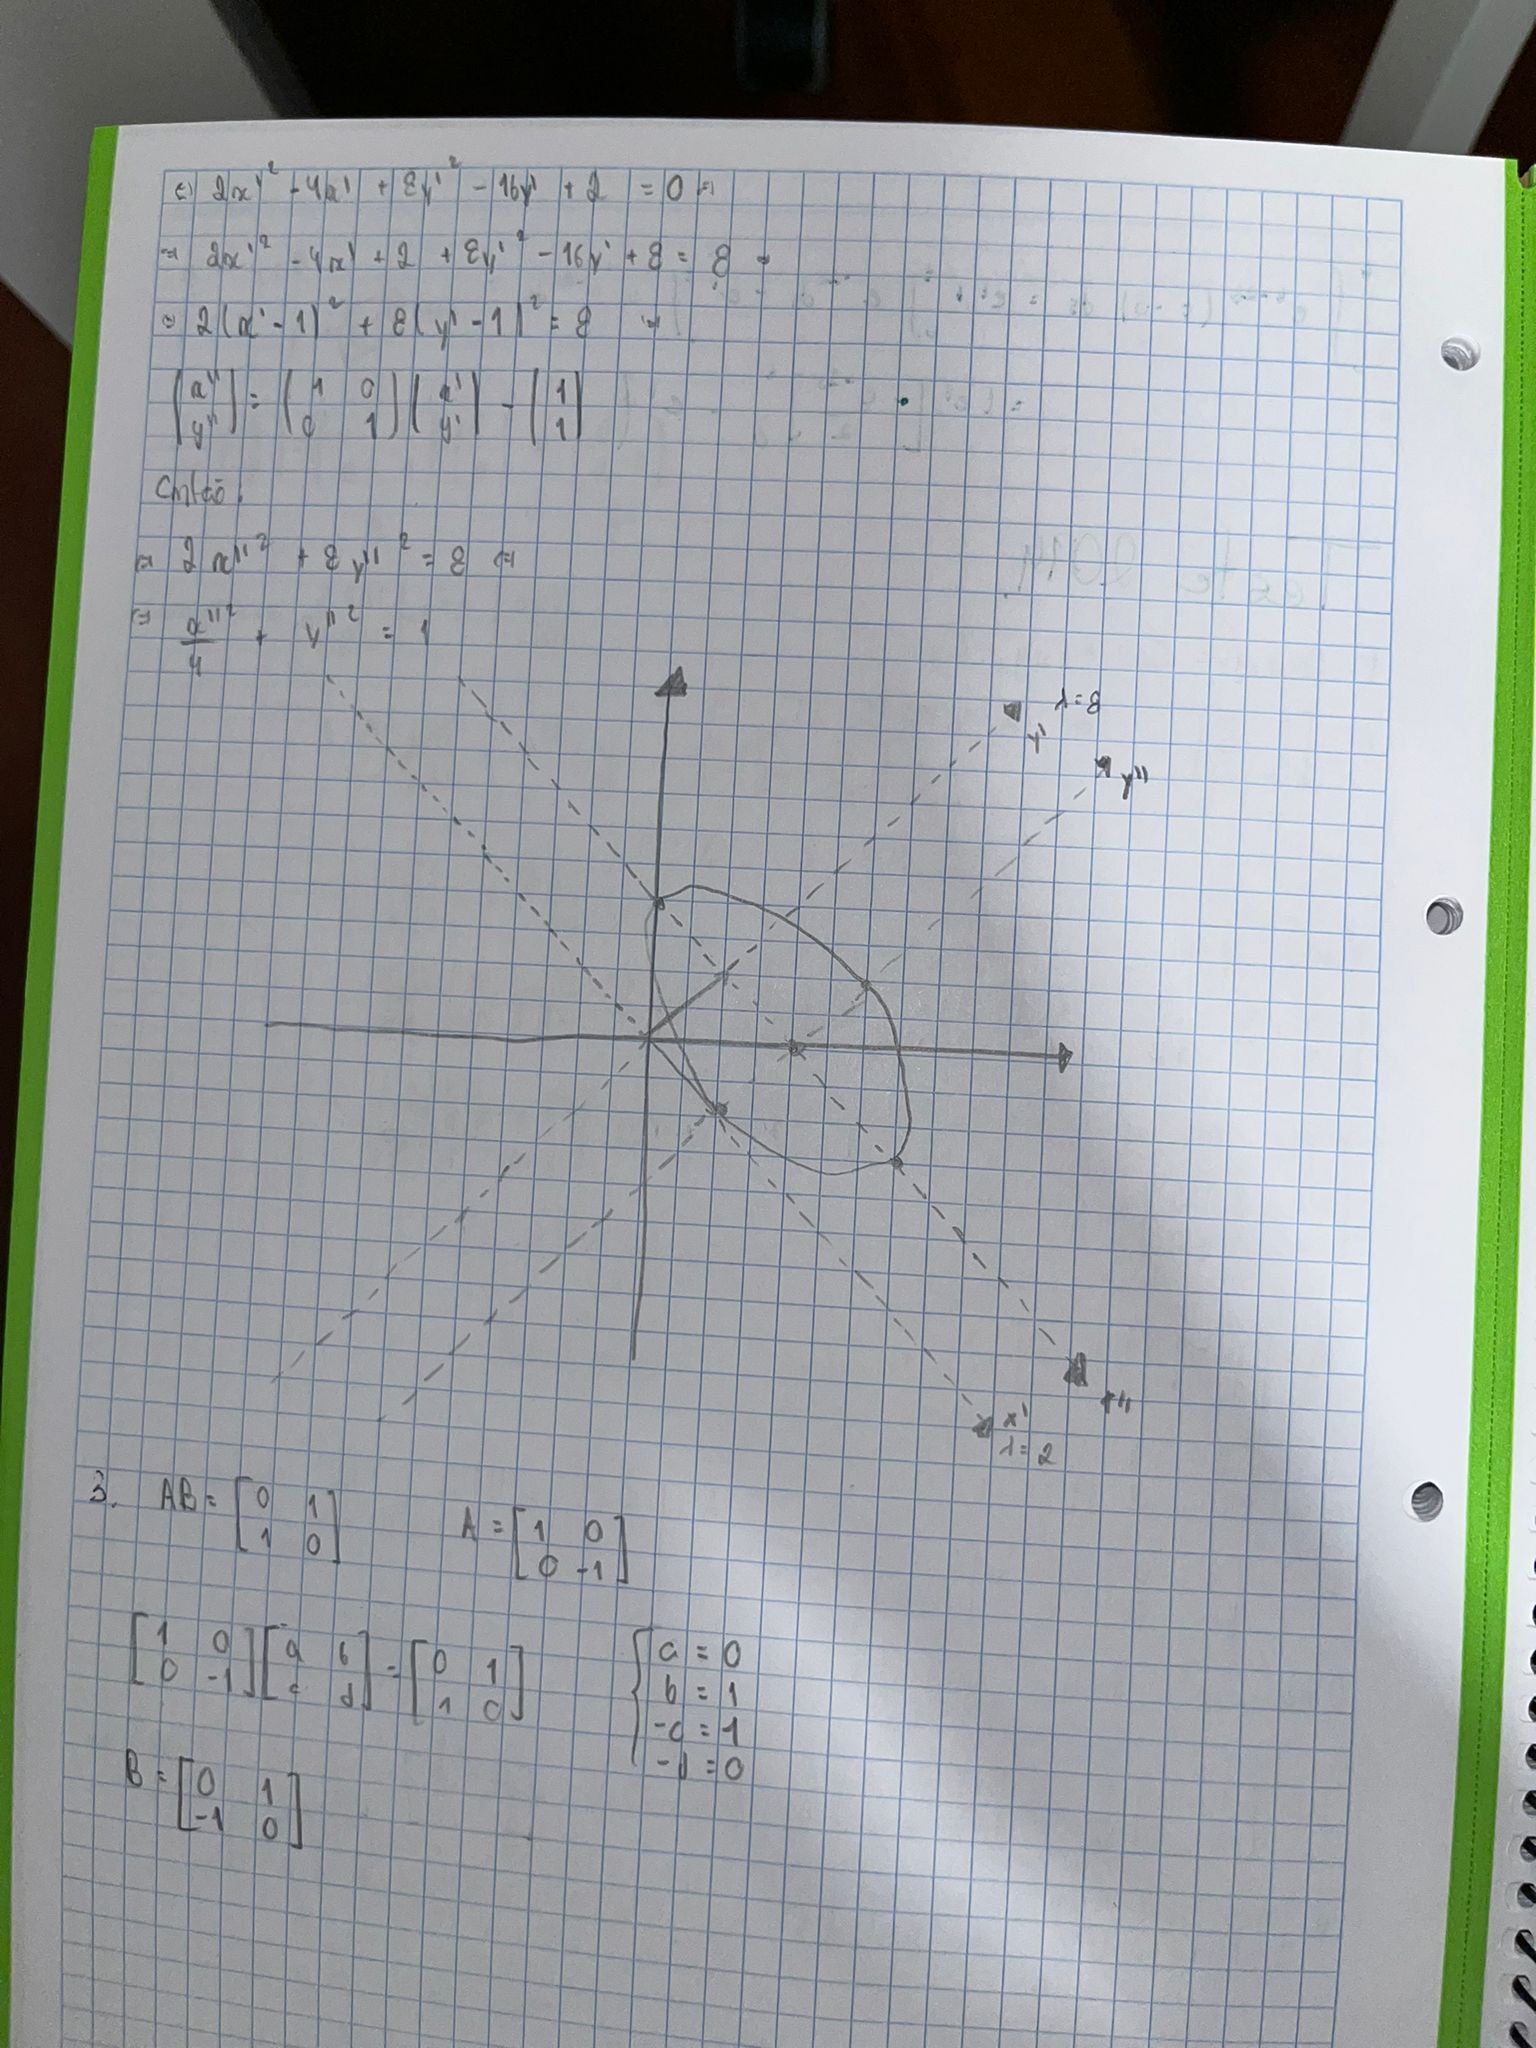 ⇔ 2x'² - 4x' + 8y'² - 16y' + 2 = 0 ⇔
⇔ 2x'² - 4x' + 2 + 8y'² - 16y' + 8 = 8 ⇔
⇔ 2(x' - 1)² + 8(y' - 1)² = 8 ⇔
(x'' y'') = (1 0 0 1)(x' y') - (1 1)
Então
⇔ 2x''² + 8y''² = 8 ⇔
⇔ x''²/4 + y''² = 1
λ=8
y'
y''
x''
x'
λ=2
3. AB = [0 1 1 0] A = [1 0 0 -1]
[1 0 0 -1][a b c d] = [0 1 1 0] { a = 0
b = 1
-c = 1
-d = 0
B = [0 1 -1 0]